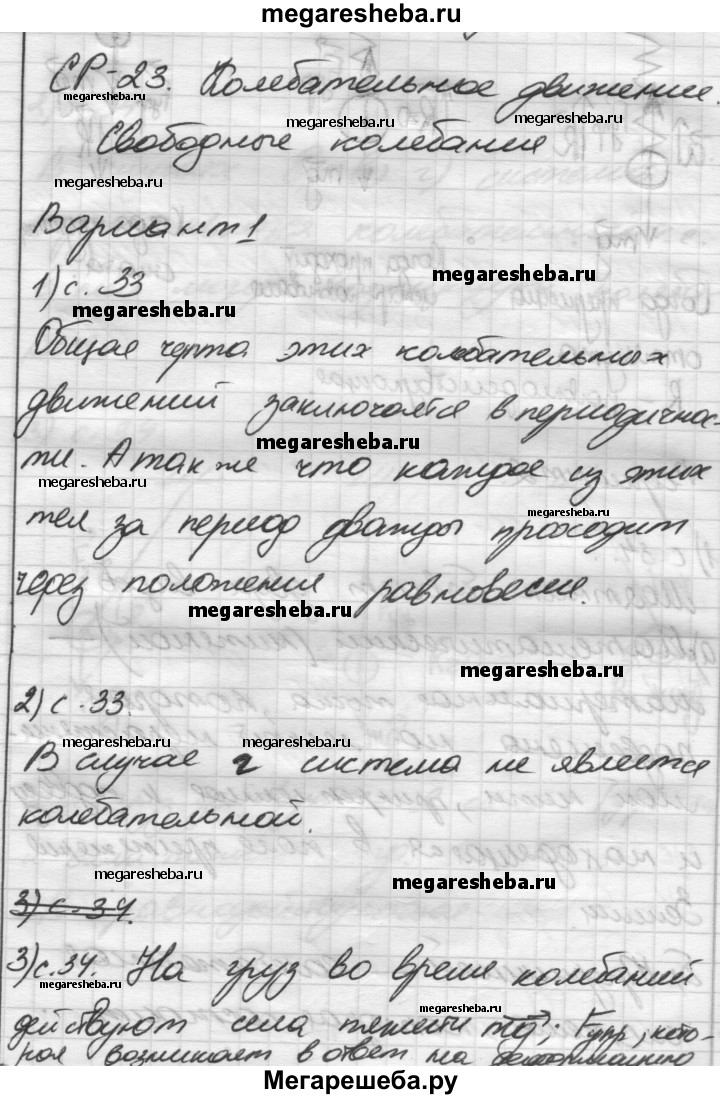 megaresheba.ru
СР-23. Колебательное движение.
megaresheba.ru megaresheba.ru megaresheba.ru
Свободные колебания
megaresheba.ru
Вариант 1
megaresheba.ru
1) с. 33
megaresheba.ru
Общая черта этих колебательных
движений заключается в периодичнос-
megaresheba.ru
ти. А так же что каждое из этих
megaresheba.ru
megaresheba.ru
тел за период дважды проходит
через положения равновесие.
megaresheba.ru
megaresheba.ru
2) с. 33.
megaresheba.ru megaresheba.ru
В случае г система не является
колебательной.
megaresheba.ru megaresheba.ru
3) с. 34.
3) с. 34. На груз во время колебаний
megaresheba.ru megaresheba.ru
действуют сила тяжести mg; Fупр, кото-
megaresheba.ru
рая возникает в ответ на деформацию
Мегарешеба.ру